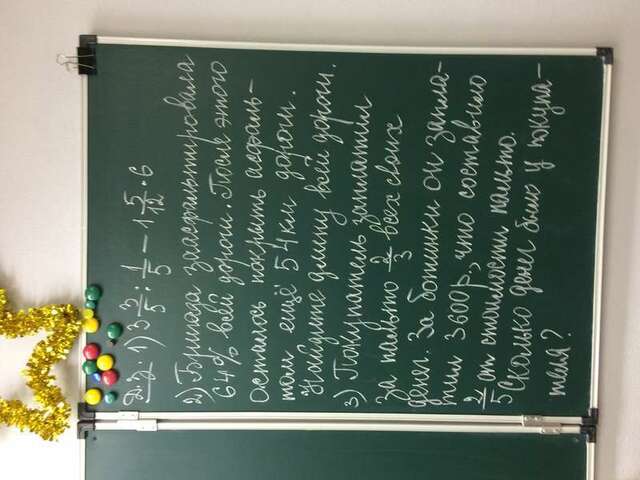 Д.З. 1) 3 3/5 : 1/5 − 1 5/12 · 6
2) Бригада заасфальтировала
64% всей дороги. После этого
осталось покрыть асфаль-
том ещё 54 км дороги.
Найдите длину всей дороги.
3) Покупатель заплатил
за пальто 2/3 всех своих
денег. За ботинки он запла-
тил 3600р., что составило
2/5 от стоимости пальто.
Сколько денег было у покупа-
теля?